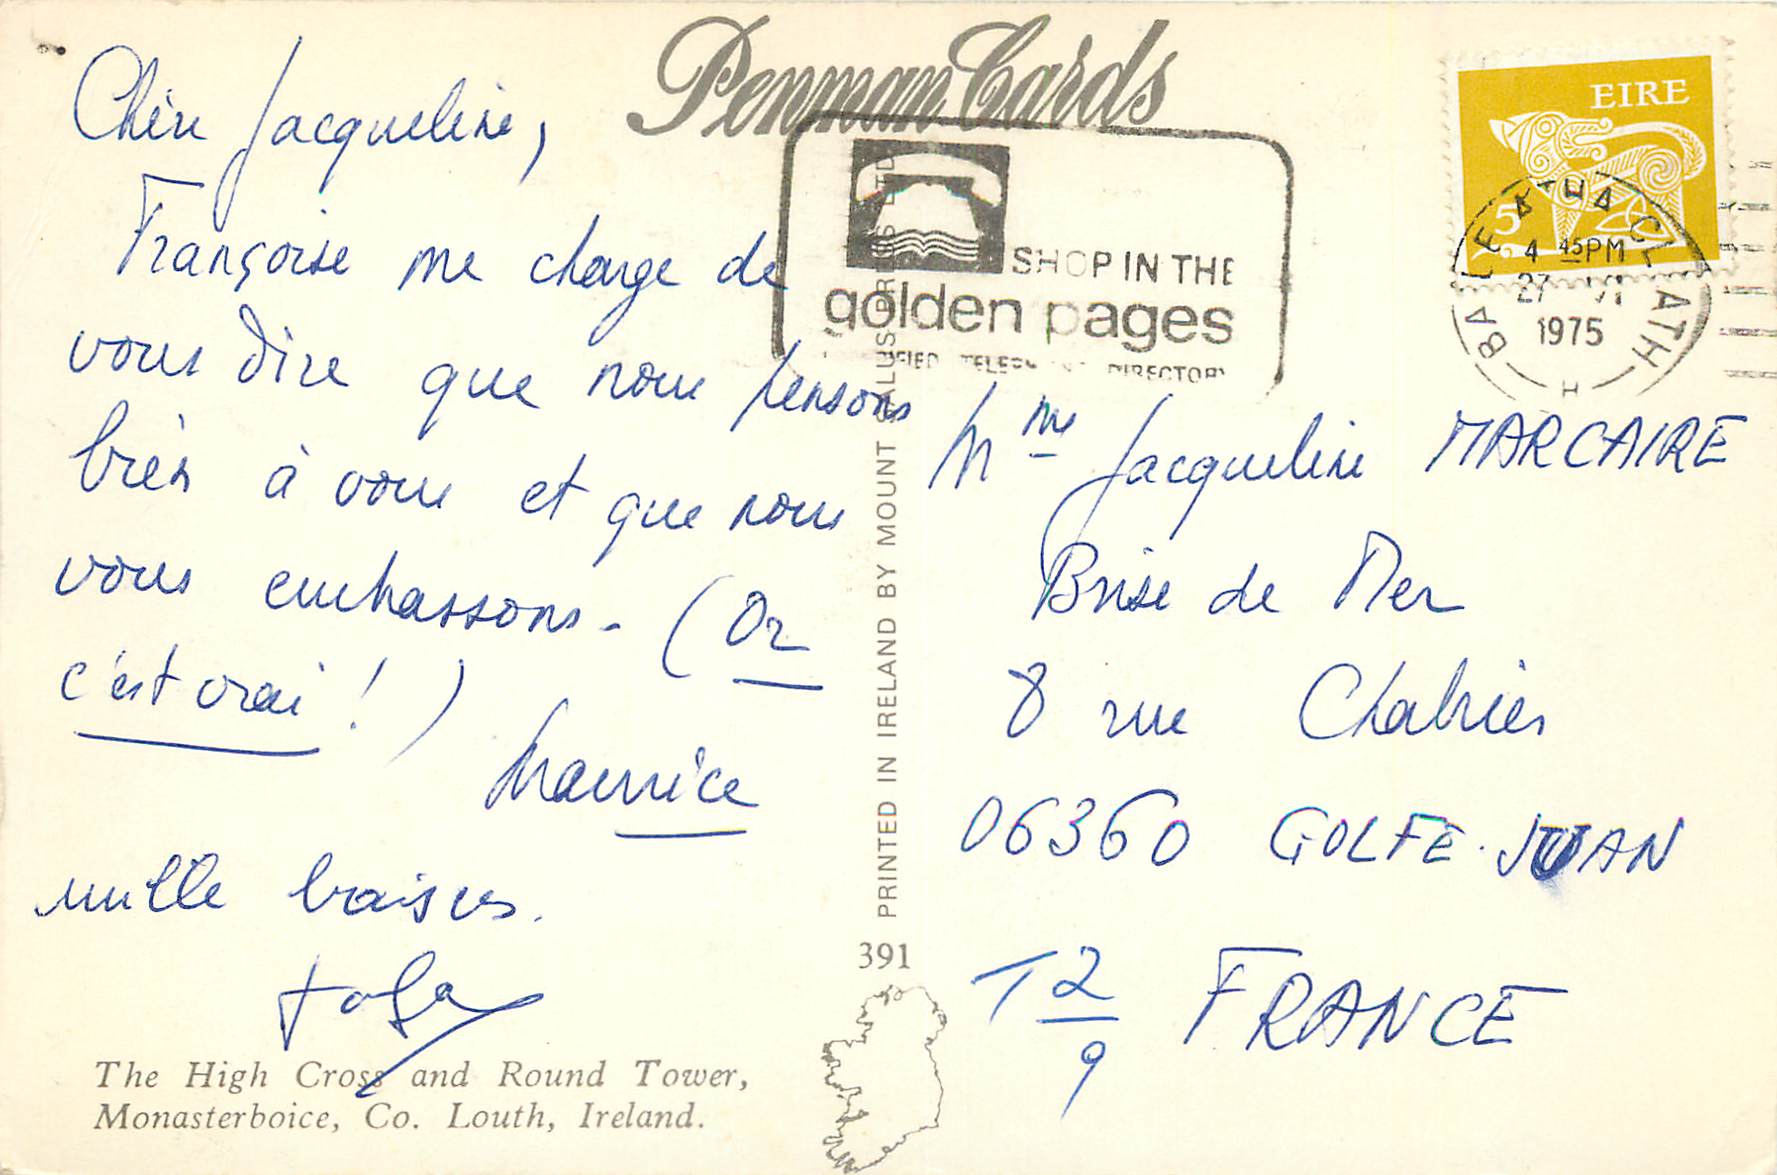 Penman Cards
Chère Jacqueline,
Françoise me charge de
vous dire que nous pensons
bien à vous et que nous
vous embrassons - (Or
c'est vrai ! )
Maurice
mille baises.
The High Cross and Round Tower,
Monasterboice, Co. Louth, Ireland.
PRINTED IN IRELAND BY MOUNT SALUS PRESS LTD.
391
SHOP IN THE
golden pages
DIRECTORY
EIRE
5
BAILE ATHA CLIATH
4 45PM
27 VI
1975
H
Mme Jacqueline MARCAIRE
Brise de Mer
8 rue Chabrier
06360 GOLFE-JUAN
T 2/9 FRANCE